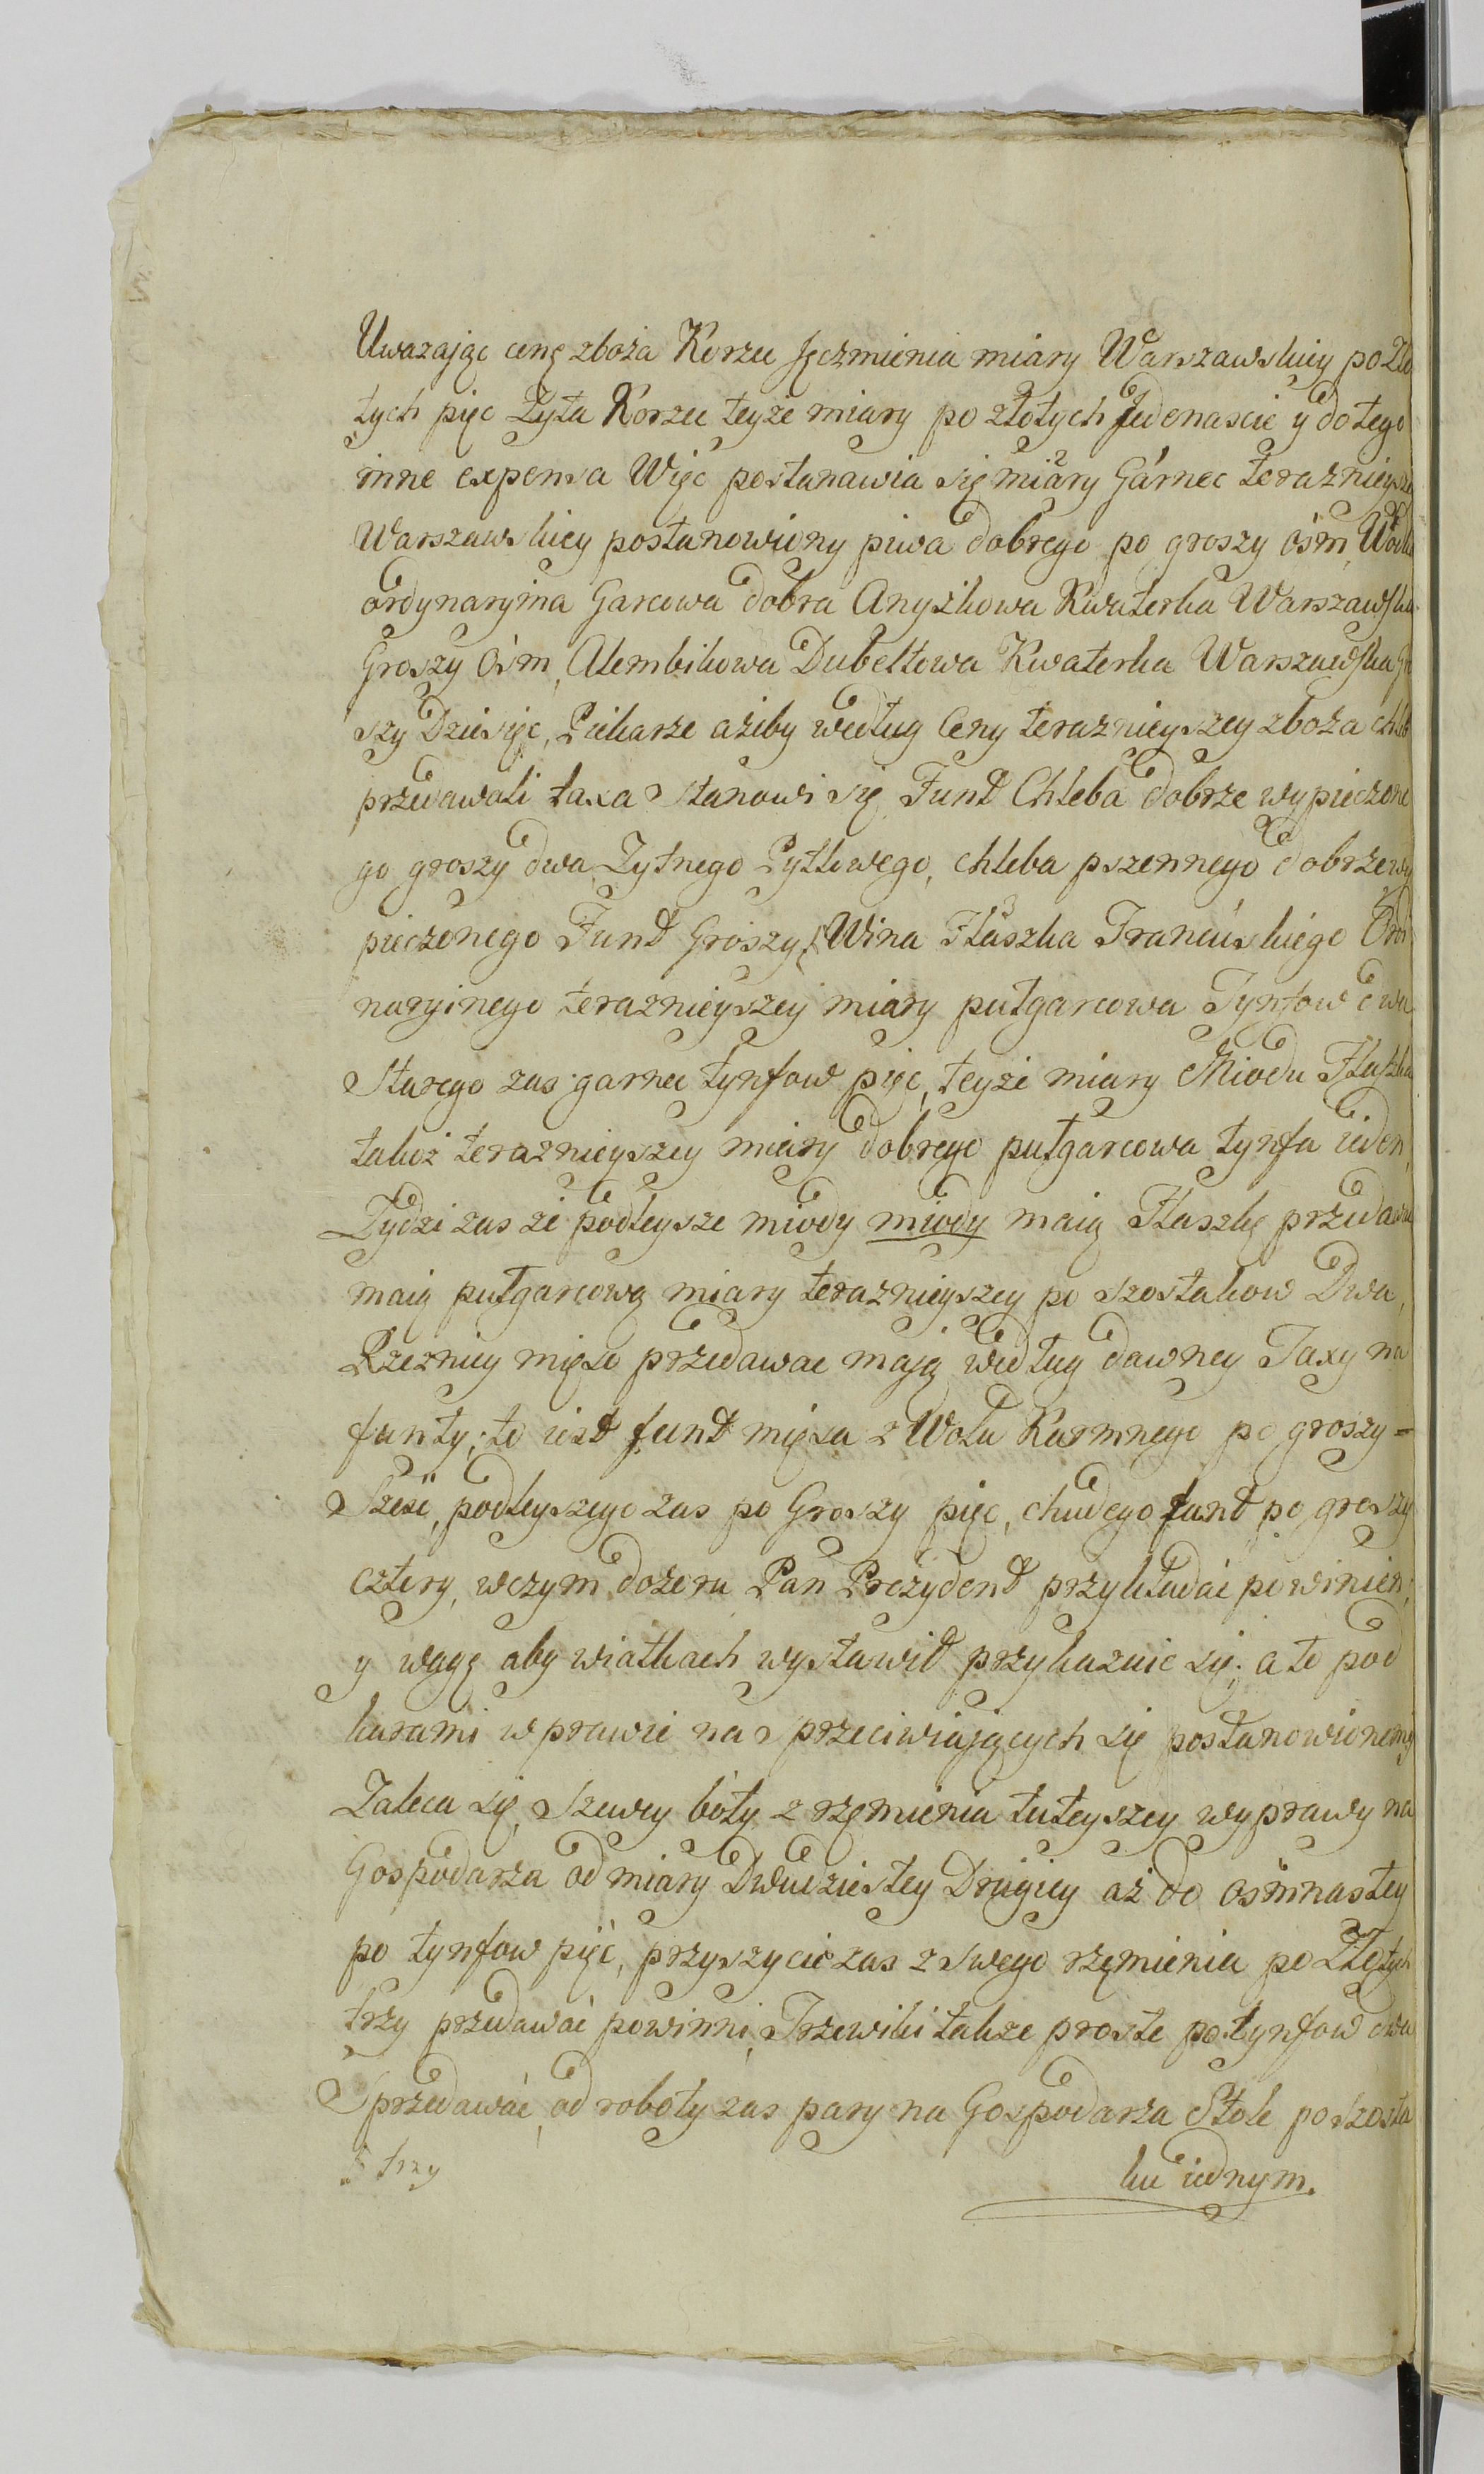 Uwazając cenę zboża Korzec Jęczmienia miary Warszawskiey po Zło
tych pięc Zyta Korzec teyże miary po złotych Jedenascie y do tego
inne expensa Więc postanawia się miary Garnec teraznieysze
Warszawskiey postanowiony piwa dobrego po groszy ośm, Wodka
ordynaryina Garcowa dobra Anyżkowa Kwaterka Warszawska
Groszy Ośm, Alembikowa Dubeltowa Kwaterka Warszawska Gro
szy Dziesięc, Piekarze ażeby według Ceny teraznieyszey zboża chleb
przedawali taxa stanowi się Funt Chleba dobrze wypieczone
go groszy dwa Zytnego Pytlowego, chleba pszennego dobrze wy
pieczonego Funt Groszy Wina Flaszka Francuskiego Ordi
naryinego terazniejszey miary putgarcowa Tynfow dwa
Starego zas garnec tynfow pięc, teyże miary Miodu Flaszka
takoż terazniejszey miary dobrego putgarcowa tynfa ieden,
Zydzi zas że podleysze miody miody maią Flaszkę przedawac
maią putgarcową miary terazniejszey po szostakow Dwa,
Rzeznicy mięso przedawac mają według dawney Taxy na
funty; to iest funt mięsa z Wołu Karmnego po groszy =
Sześć, podleyszego zas po Groszy pięc, chudego funt po groszy
cztery, wczym dozoru Pan Prezydent przykładać powinien;
y wagę aby wiatkach wystawił przykazuie się; a to pod
karami w prawie na sprzeciwiających się postanowionemi
Zaleca się, Szewcy bóty z rzemienia tuteyszey wyprawy na
Gospodarza od miary Dwudziestey Drugiey aż do osmnastey
po tynfow pięć, przyszycie zas z swego rzemienia po Złotych
trzy przedawać powinni, Trzewiki takze proste po tynfow dwa
Sprzedawać, od roboty zas pary na Gospodarza Stole po szosta
trzy
ku iednym.